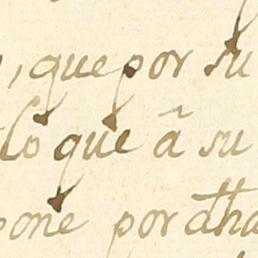 , que por su
lo que â su
pone por dha